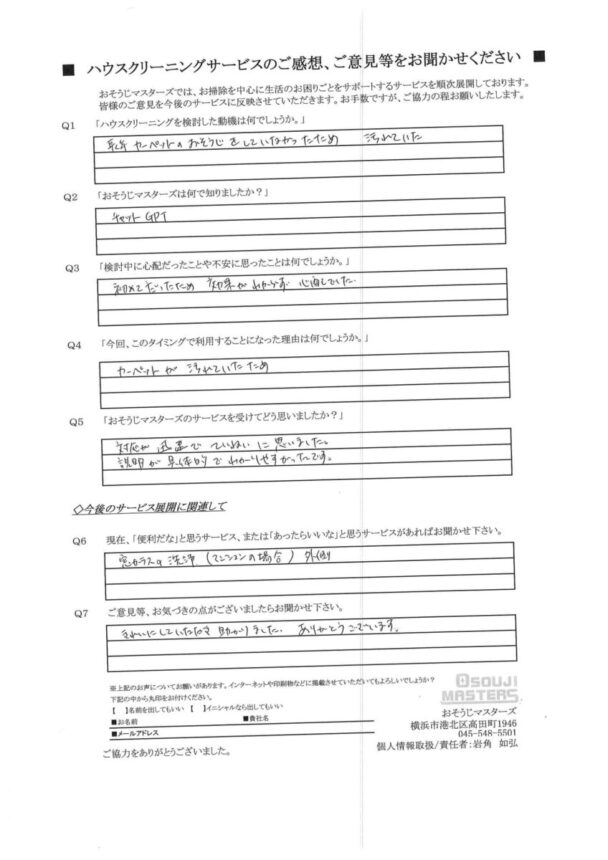 ■ ハウスクリーニングサービスのご感想、ご意見等をお聞かせください ■
おそうじマスターズでは、お掃除を中心に生活のお困りごとをサポートするサービスを順次展開しております。
皆様のご意見を今後のサービスに反映させていただきます。お手数ですが、ご協力の程お願いいたします。
Q1 「ハウスクリーニングを検討した動機は何でしょうか。」
カーペットのおそうじをしていなかったため 汚れていた
Q2 「おそうじマスターズは何で知りましたか？」
チャットGPT
Q3 「検討中に心配だったことや不安に思ったことは何でしょうか。」
初めてだったため 効果がわからず 心配でした.
Q4 「今回、このタイミングで利用することになった理由は何でしょうか。」
カーペットが 汚れていたため
Q5 「おそうじマスターズのサービスを受けてどう思いましたか？」
対応が 迅速で ていねいに思いました。
説明が具体的でわかりやすかったです。
◇今後のサービス展開に関連して
Q6 現在、「便利だな」と思うサービス、または「あったらいいな」と思うサービスがあればお聞かせ下さい。
窓ガラスの洗浄 (マンションの場合) 外側
Q7 ご意見等、お気づきの点がございましたらお聞かせ下さい。
きれいにしていただき 助かりました. ありがとうございます。
※上記のお声についてお願いがあります。インターネットや印刷物などに掲載させていただいてもよろしいでしょうか？
下記の中から丸印をお付けください。
【 】名前を出してもいい 【 】イニシャルなら出してもいい
■お名前 ■貴社名
■メールアドレス
ご協力をありがとうございました。
OSOUJI
MASTERS
おそうじマスターズ
横浜市港北区高田町1946
045-548-5501
個人情報取扱/責任者:岩角 如弘